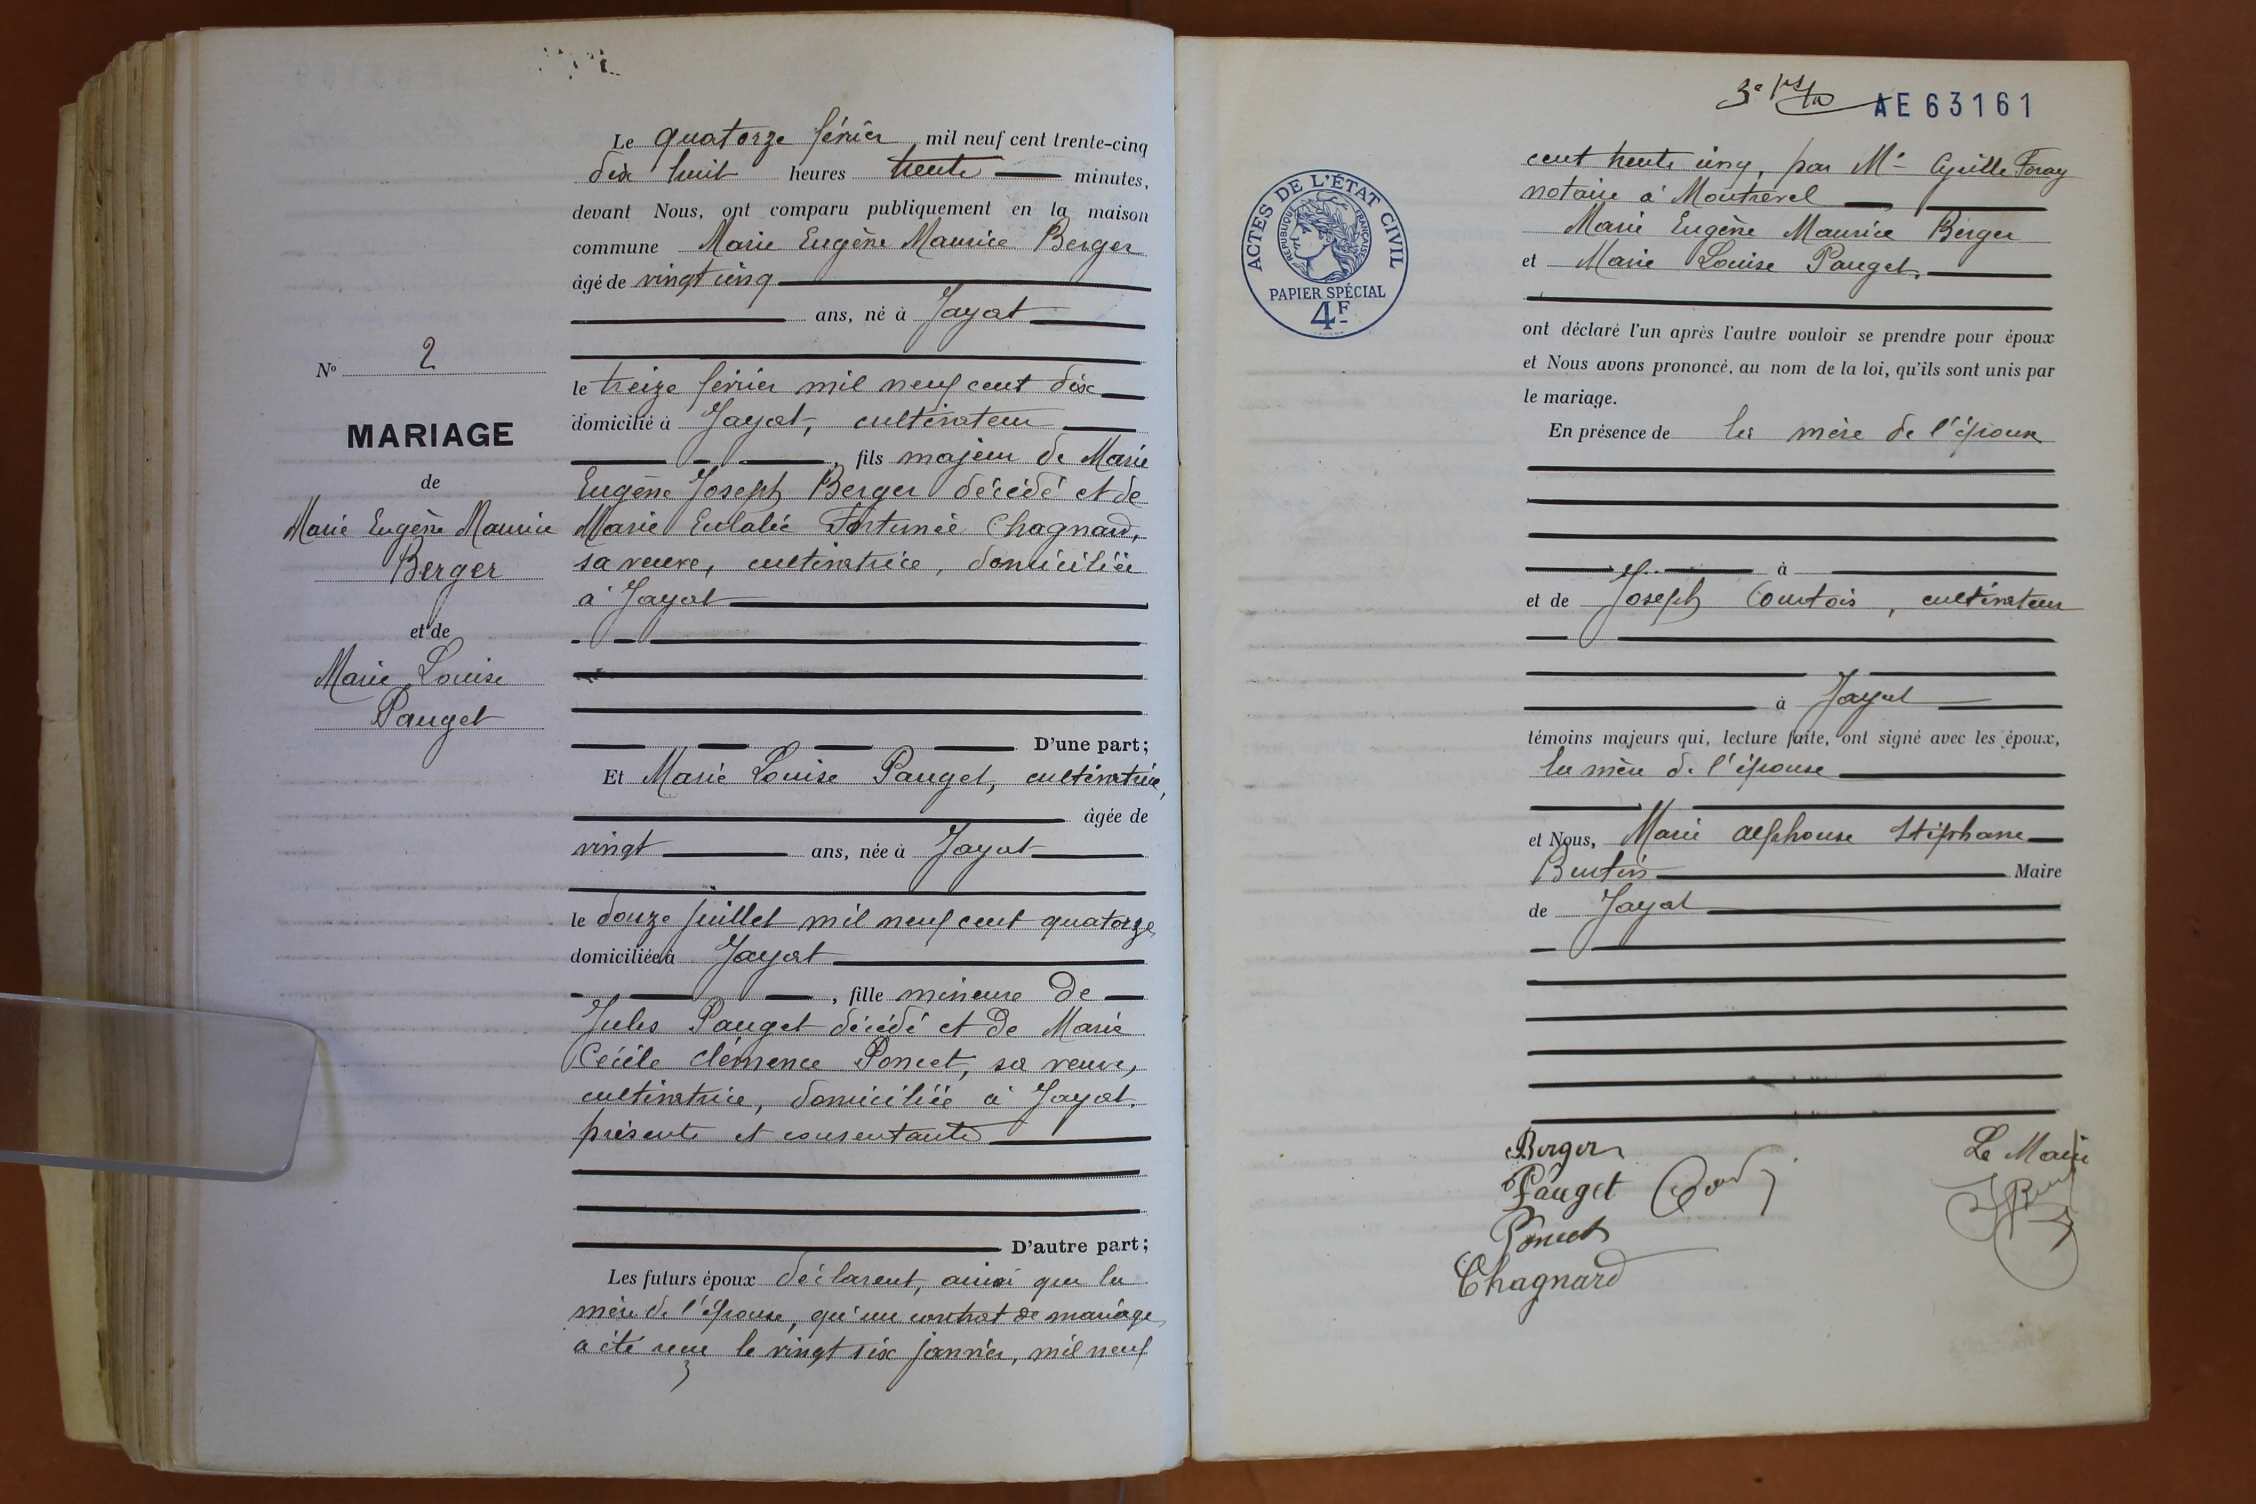 Le quatorze février, mil neuf cent trente-cinq
dix huit heures trente minutes,
devant Nous, ont comparu publiquement en la maison
commune Marie Eugène Maurice Berger
âgé de vingt cinq
ans, né à Jayat
le treize février mil neuf cent dix
domicilié à Jayat, cultivateur
, fils majeur de Marie
Eugène Joseph Berger décédé et de
Marie Eulalie Fortunée Chagnard,
sa veuve, cultivatrice, domiciliée
à Jayat
D'une part;
Et Marie Louise Pauget, cultivatrice,
âgée de
vingt ans, née à Jayat
le douze juillet mil neuf cent quatorze
domiciliée à Jayat
, fille mineure de
Jules Pauget décédé et de Marie
Cécile Clémence Poncet, sa veuve,
cultivatrice, domiciliée à Jayat.
présente et consentante
D'autre part;
Les futurs époux déclarent, ainsi que la
mère de l'épouse, qu'un contrat de mariage
a été reçu le vingt six janvier, mil neuf
No 2
MARIAGE
de
Marie Eugène Maurice
Berger
et de
Marie Louise
Pauget
AE 63161
ACTES DE L'ÉTAT CIVIL
RÉPUBLIQUE FRANÇAISE
PAPIER SPÉCIAL
4F
cent trente cinq, par Me Cyrille Foray
notaire à Montrevel
Marie Eugène Maurice Berger
et Marie Louise Pauget.
ont déclaré l'un après l'autre vouloir se prendre pour époux
et Nous avons prononcé, au nom de la loi, qu'ils sont unis par
le mariage.
En présence de la mère de l'époux
à
et de Joseph Courtois, cultivateur
à Jayat
témoins majeurs qui, lecture faite, ont signé avec les époux,
la mère de l'épouse
et Nous, Marie Alphonse Stéphane
Maire
de Jayat
Berger
Pauget
Poncet
Chagnard
Le Maire